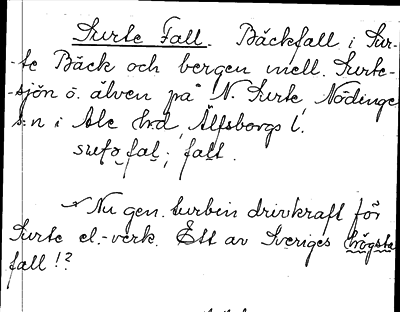 Surte Fall. Bäckfall i Sur-
-te Bäck och bergen mell. Surte-
-sjön o. älven på N. Surte, Nödinge
s:n i Ale hrd, Älfsborgs l.
fal, falt.
Nu gen. turbin drivkraft för
Surte el.-verk. Ett av Sveriges högsta
fall!?